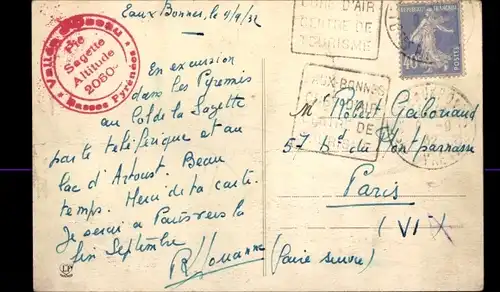 Eaux Bonnes, le 9/9/32
Vallée d'Ossau
Pic
Sagette
Altitude
2060
Basses Pyrénées
D'AIR
CENTRE DE
TOURISME
EAUX-BONNES
DE
REPUBLIQUE FRANÇAISE
En excursion
dans les Pyrénées
au Col de la Sagette
par le téléférique et au
lac d'Artoust. Beau
temps. Merci de ta carte.
Je serai à Paris vers la
fin Septembre
Mr Robert Gabouaud
57 Bd du Montparnasse
Paris
(VI
(faire suivre)